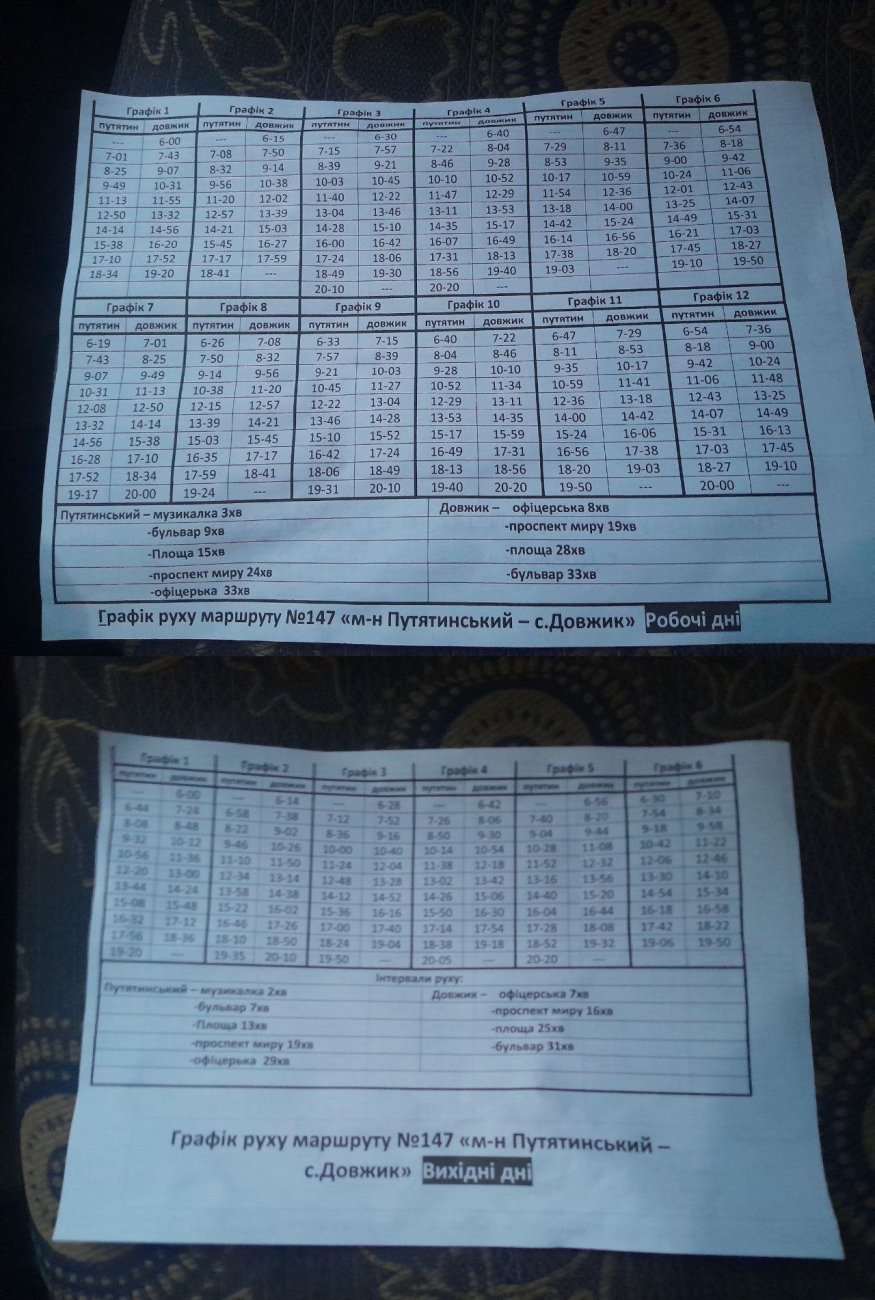 Графік 1 Графік 2 Графік 3 Графік 4 Графік 5 Графік 6
путятин довжик путятин довжик путятин довжик путятин довжик путятин довжик путятин довжик
--- 6-00 --- 6-15 --- 6-30 --- 6-40 --- 6-47 --- 6-54
7-01 7-43 7-08 7-50 7-15 7-57 7-22 8-04 7-29 8-11 7-36 8-18
8-25 9-07 8-32 9-14 8-39 9-21 8-46 9-28 8-53 9-35 9-00 9-42
9-49 10-31 9-56 10-38 10-03 10-45 10-10 10-52 10-17 10-59 10-24 11-06
11-13 11-55 11-20 12-02 11-40 12-22 11-47 12-29 11-54 12-36 12-01 12-43
12-50 13-32 12-57 13-39 13-04 13-46 13-11 13-53 13-18 14-00 13-25 14-07
14-14 14-56 14-21 15-03 14-28 15-10 14-35 15-17 14-42 15-24 14-49 15-31
15-38 16-20 15-45 16-27 16-00 16-42 16-07 16-49 16-14 16-56 16-21 17-03
17-10 17-52 17-17 17-59 17-24 18-06 17-31 18-13 17-38 18-20 17-45 18-27
18-34 19-20 18-41 --- 18-49 19-30 18-56 19-40 19-03 --- 19-10 19-50
20-10 --- 20-20 ---
Графік 7 Графік 8 Графік 9 Графік 10 Графік 11 Графік 12
путятин довжик путятин довжик путятин довжик путятин довжик путятин довжик путятин довжик
6-19 7-01 6-26 7-08 6-33 7-15 6-40 7-22 6-47 7-29 6-54 7-36
7-43 8-25 7-50 8-32 7-57 8-39 8-04 8-46 8-11 8-53 8-18 9-00
9-07 9-49 9-14 9-56 9-21 10-03 9-28 10-10 9-35 10-17 9-42 10-24
10-31 11-13 10-38 11-20 10-45 11-27 10-52 11-34 10-59 11-41 11-06 11-48
12-08 12-50 12-15 12-57 12-22 13-04 12-29 13-11 12-36 13-18 12-43 13-25
13-32 14-14 13-39 14-21 13-46 14-28 13-53 14-35 14-00 14-42 14-07 14-49
14-56 15-38 15-03 15-45 15-10 15-52 15-17 15-59 15-24 16-06 15-31 16-13
16-28 17-10 16-35 17-17 16-42 17-24 16-49 17-31 16-56 17-38 17-03 17-45
17-52 18-34 17-59 18-41 18-06 18-49 18-13 18-56 18-20 19-03 18-27 19-10
19-17 20-00 19-24 --- 19-31 20-10 19-40 20-20 19-50 --- 20-00 ---
Путятинський – музикалка 3хв Довжик – офіцерська 8хв
-бульвар 9хв -проспект миру 19хв
-Площа 15хв -площа 28хв
-проспект миру 24хв -бульвар 33хв
-офіцерька 33хв
Графік руху маршруту №147 «м-н Путятинський – с.Довжик» Робочі дні
Графік 1 Графік 2 Графік 3 Графік 4 Графік 5 Графік 6
путятин довжик путятин довжик путятин довжик путятин довжик путятин довжик путятин довжик
--- 6-00 --- 6-14 --- 6-28 --- 6-42 --- 6-56 6-30 7-10
6-44 7-24 6-58 7-38 7-12 7-52 7-26 8-06 7-40 8-20 7-54 8-34
8-08 8-48 8-22 9-02 8-36 9-16 8-50 9-30 9-04 9-44 9-18 9-58
9-32 10-12 9-46 10-26 10-00 10-40 10-14 10-54 10-28 11-08 10-42 11-22
10-56 11-36 11-10 11-50 11-24 12-04 11-38 12-18 11-52 12-32 12-06 12-46
12-20 13-00 12-34 13-14 12-48 13-28 13-02 13-42 13-16 13-56 13-30 14-10
13-44 14-24 13-58 14-38 14-12 14-52 14-26 15-06 14-40 15-20 14-54 15-34
15-08 15-48 15-22 16-02 15-36 16-16 15-50 16-30 16-04 16-44 16-18 16-58
16-32 17-12 16-46 17-26 17-00 17-40 17-14 17-54 17-28 18-08 17-42 18-22
17-56 18-36 18-10 18-50 18-24 19-04 18-38 19-18 18-52 19-32 19-06 19-50
19-20 --- 19-35 20-10 19-50 --- 20-05 --- 20-20 ---
Інтервали руху:
Путятинський – музикалка 2хв Довжик – офіцерська 7хв
-бульвар 7хв -проспект миру 16хв
-Площа 13хв -площа 25хв
-проспект миру 19хв -бульвар 31хв
-офіцерька 29хв
Графік руху маршруту №147 «м-н Путятинський –
с.Довжик» Вихідні дні